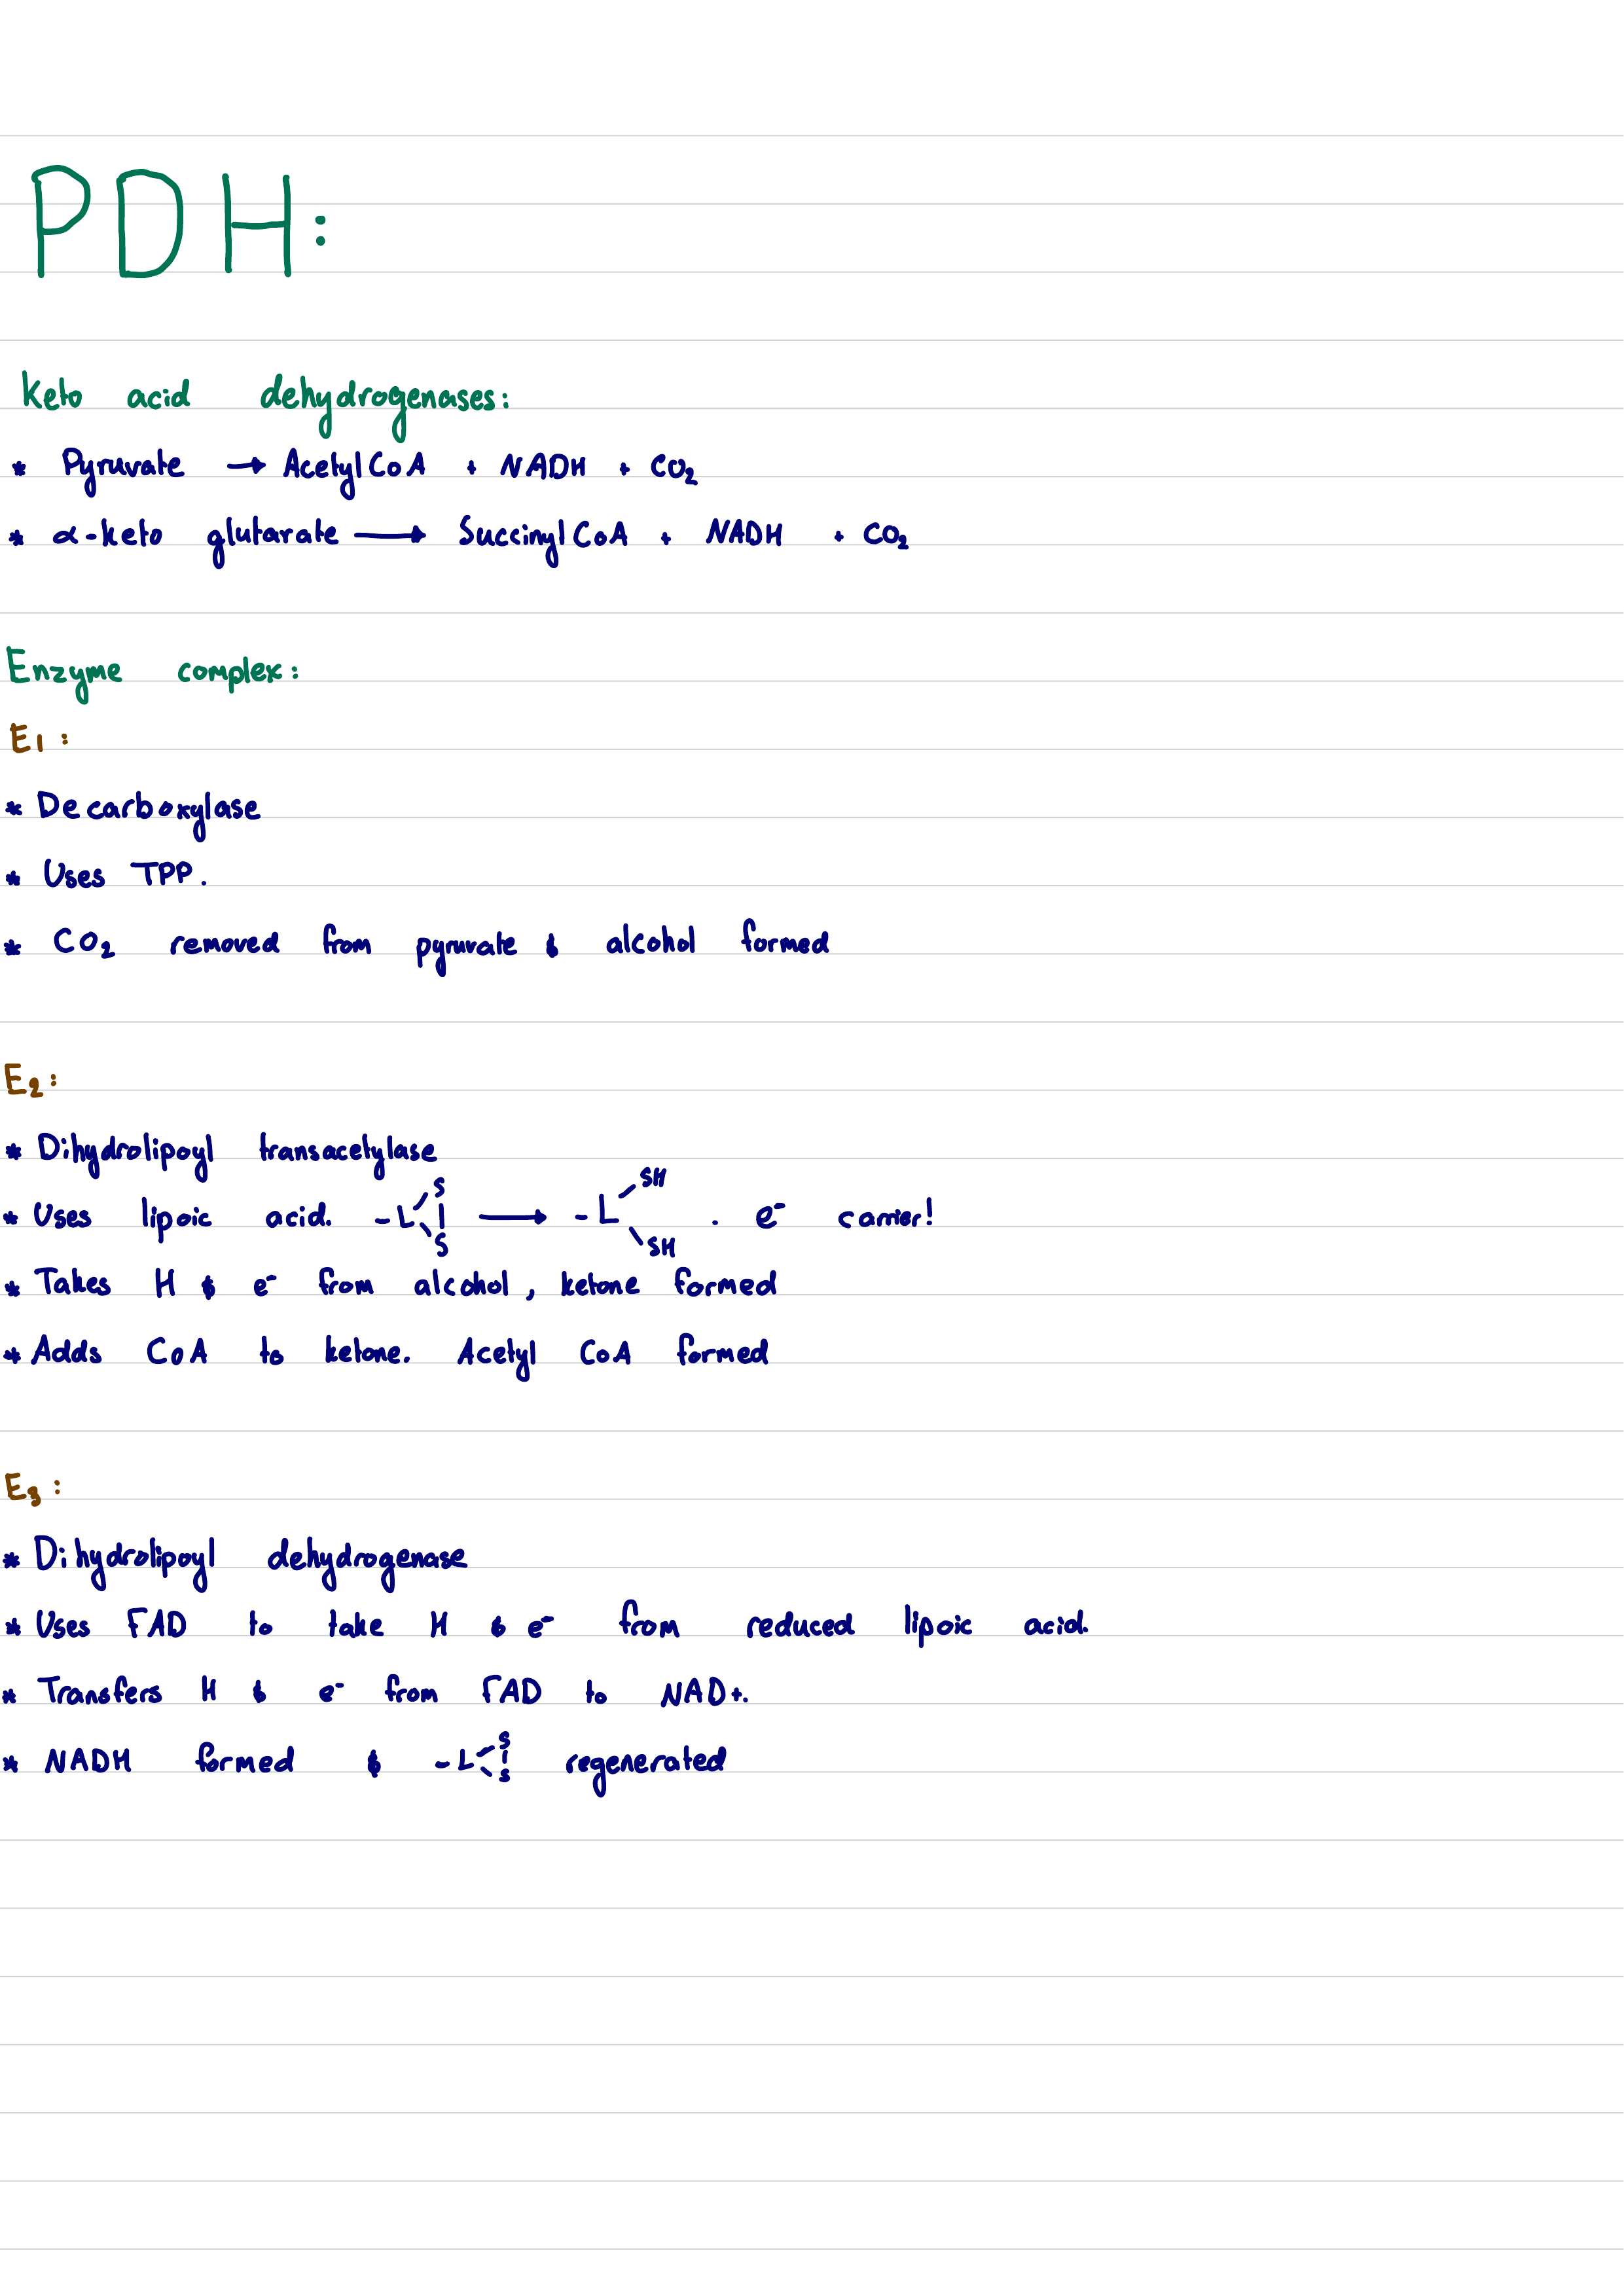 PDH:
Keto acid dehydrogenases:
* Pyruvate → Acetyl CoA + NADH + CO₂
* α-keto glutarate → Succinyl CoA + NADH + CO₂
Enzyme complex:
E1:
* Decarboxylase
* Uses TPP.
* CO₂ removed from pyruvate & alcohol formed
E₂:
* Dihydrolipoyl transacetylase
* Uses lipoic acid. -L S S → -L SH SH . e⁻ carrier!
* Takes H & e⁻ from alcohol, ketone formed
* Adds CoA to ketone. Acetyl CoA formed
E₃:
* Dihydrolipoyl dehydrogenase
* Uses FAD to take H & e⁻ from reduced lipoic acid.
* Transfers H & e⁻ from FAD to NAD+.
* NADH formed & -L S S regenerated